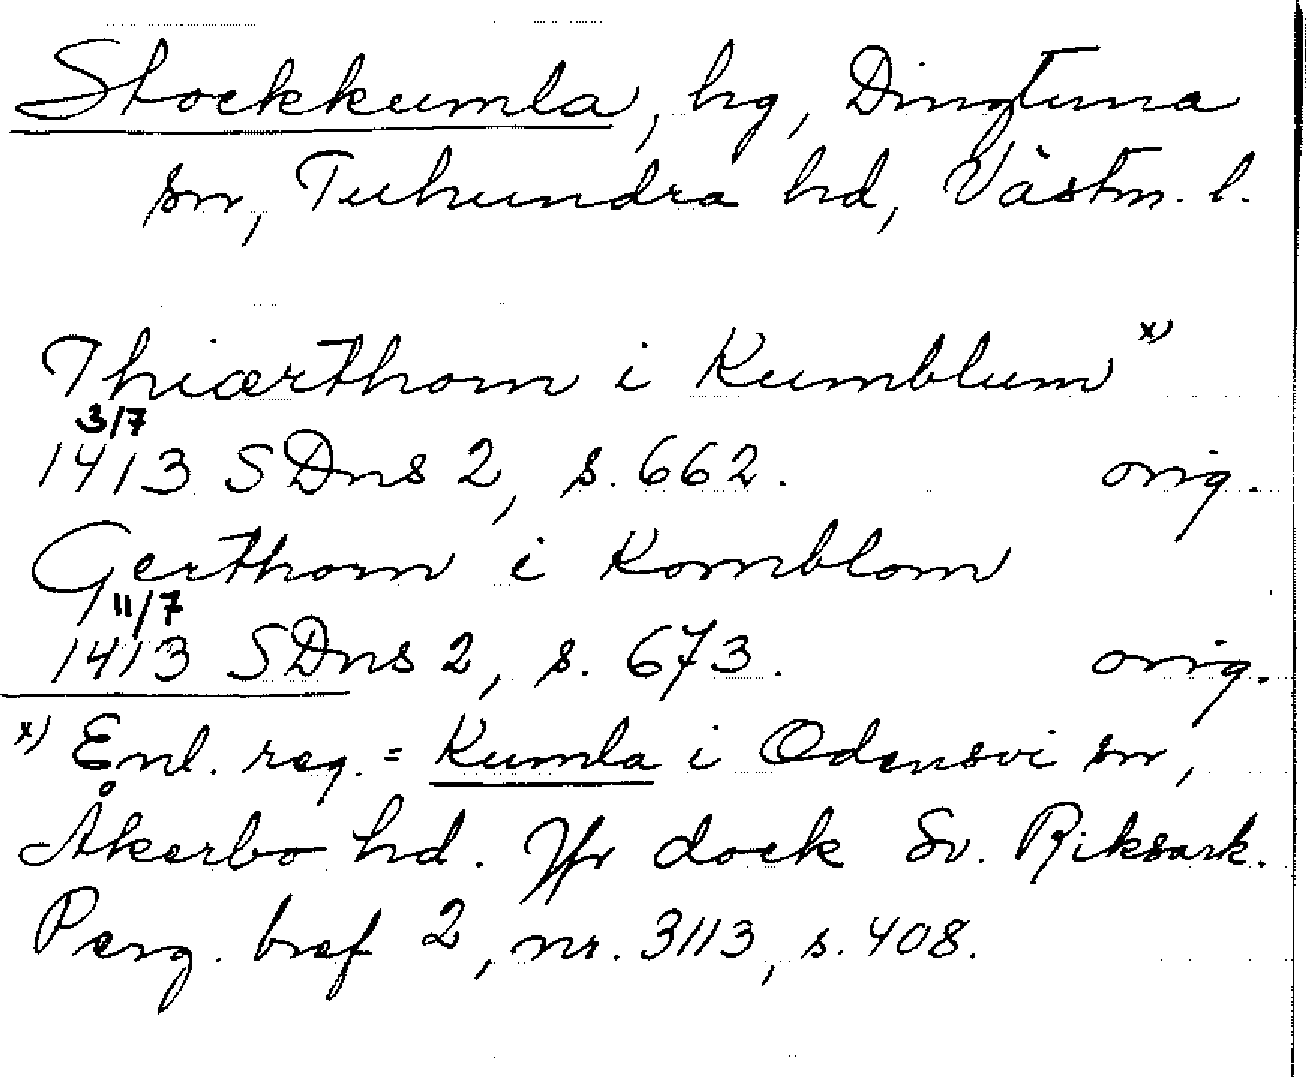 Stockkumla, hg, Dingtuna
sn, Tuhundra hd, Västm. l.
Thiærthom i Kumblum x)
3/7
1413 SDns 2, s. 662. orig.
Gerthom i Komblom
11/7
1413 SDns 2, s. 673. orig.
x) Enl. reg. = Kumla i Odensvi sn,
Åkerbo hd. Jfr dock Sv. Riksark.
Perg. bref 2, nr. 3113, s. 408.